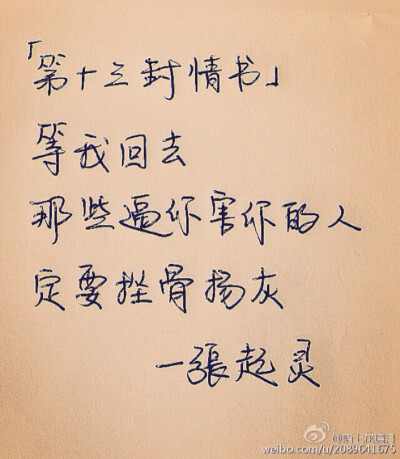 「第十三封情书」
等我回去
那些逼你害你的人
定要挫骨扬灰
—張起灵
weibo.com/u/2089641675